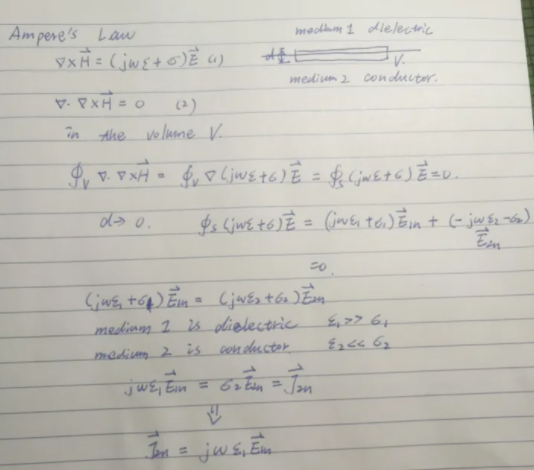 Ampere's Law
medium 1 dielectric
∇×H⃗ = (jωε+σ)E⃗ (1)
d V.
medium 2 conductor.
∇·∇×H⃗ = 0 (2)
in the volume V.
∮v ∇·∇×H⃗ = ∮v ∇(jωε+σ)E⃗ = ∮s(jωε+σ)E⃗ = 0.
d→0. ∮s(jωε+σ)E⃗ = (jωε₁+σ₁)E⃗₁n + (-jωε₂-σ₂)E⃗₂n
=0.
(jωε₁+σ₁)E⃗₁n = (jωε₂+σ₂)E⃗₂n
medium 1 is dielectric ε₁>>σ₁
medium 2 is conductor. ε₂<<σ₂
jωε₁E⃗₁n = σ₂E⃗₂n = J⃗₂n
⇓
J⃗₂n = jωε₁E⃗₁n